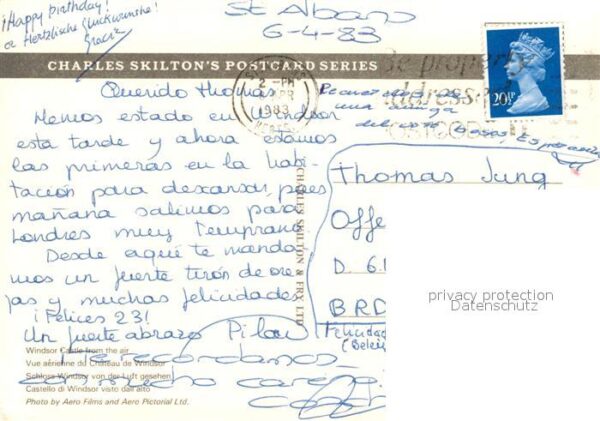 ¡Happy birthday!
o Hertzlische Glückwunshe!
St Albans
6-4-83
CHARLES SKILTON'S POSTCARD SERIES
2 - PM
APR
1983
HERTS
Be properly
addressed
POSTCODE IT
20½P
Querido Thomas
Hemos estado en Windsor
esta tarde y ahora estamos
las primeras en la habi-
tación para descansar, pues
mañana salimos para
Londres muy temprano.
Desde aquí te manda-
mos un fuerte tirón de ore-
jas y muchas felicidades
¡Felices 23!
Un fuerte abrazo Pilar
Te recordamos
con mucho cariño
Recuerdos de
una amiga
CHARLES SKILTON & FRY LTD
Thomas Jung
Offe
D. 6.
BRD
Felicida
privacy protection
Datenschutz
Windsor Castle from the air
Vue aérienne du Château de Windsor
Schloss Windsor von der Luft gesehen
Castello di Windsor visto dall'alto
Photo by Aero Films and Aero Pictorial Ltd.